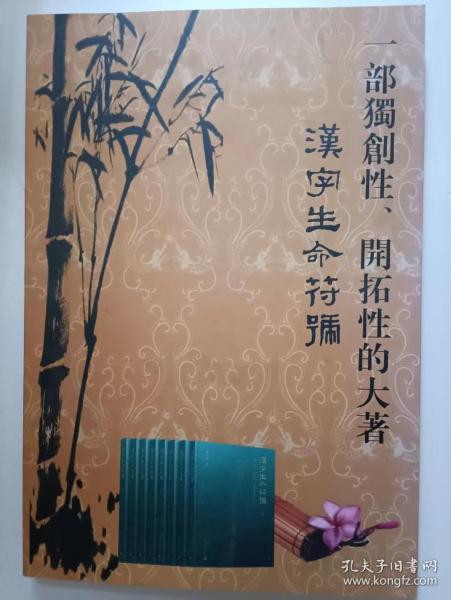 一部獨創性、開拓性的大著
漢字生命符號
漢字生命符號
孔夫子旧书网
www.kongfz.com